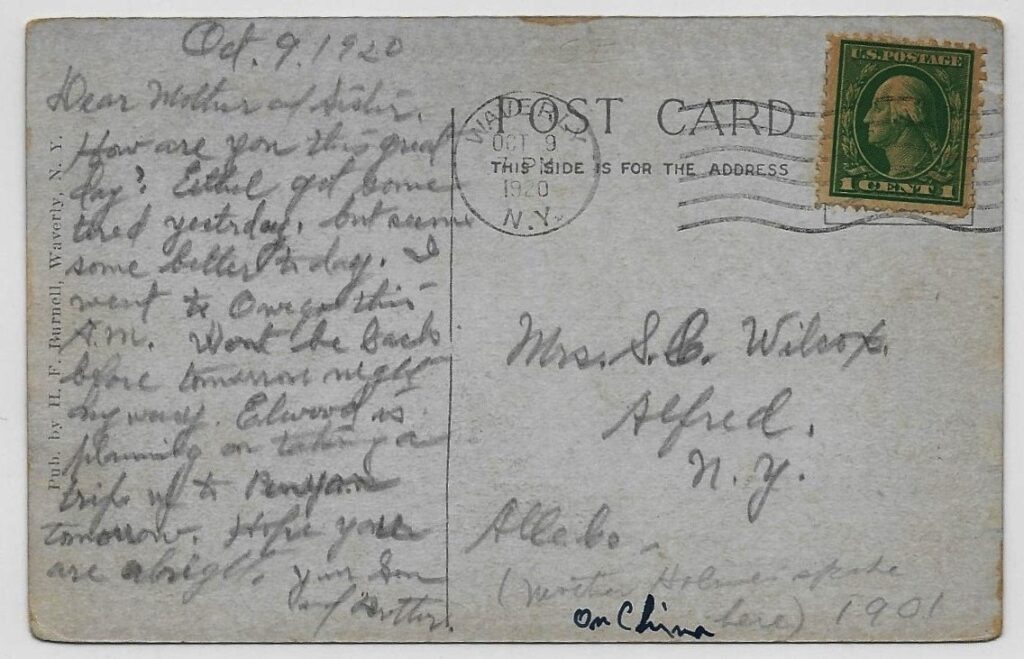 Oct. 9. 1920
Dear Mother and Sister.
How are you this great
day? Ethel got some
tired yesterday, but seems
some better today. I
went to Owego this
A.M. Wont be back
before tomorrow night
anyway. Elwood is
planning on taking a
trip up to Penyan
tomorrow. Hope you
are alright. Your Son
and Brother.
Pub. by H. F. Burnell, Waverly, N. Y.
POST CARD
THIS SIDE IS FOR THE ADDRESS
WAVERLY
OCT 9
PM
1920
N.Y.
U.S. POSTAGE
1 CENT 1
Mrs. S. C. Wilcox.
Alfred.
N. Y.
Alle Co.
(Mother Holmes spoke
here) 1901
on China